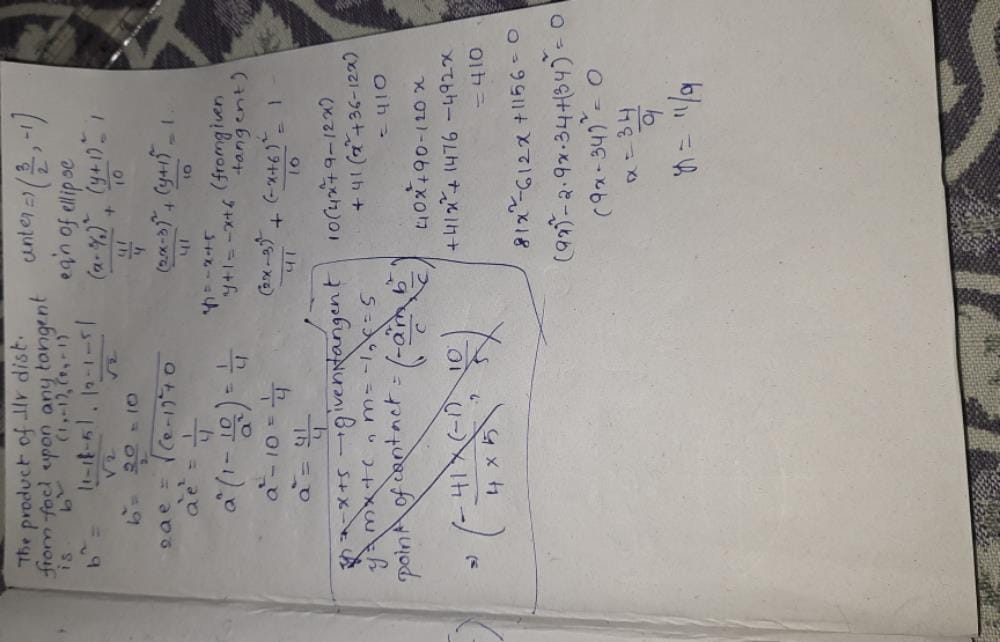 The product of ⊥lr dist.
from foci upon any tangent
is b² (1,-1), (2,-1)
b² = |1-1-5| / √2 . |2-1-5| / √2
b² = 20/2 = 10
2ae = √(2-1)²+0
a²e² = 1/4
a²(1 - 10/a²) = 1/4
a² - 10 = 1/4
a² = 41/4
y = -x+5 → given tangent
y = mx+c, m = -1, c = 5
point of contact = (-a²m/c, b²/c)
⇒ (-41×(-1) / 4×5, 10/5)
center ⇒ (3/2, -1)
eq'n of ellipse
(x-3/2)² / 41/4 + (y+1)²/10 = 1
(2x-3)²/41 + (y+1)²/10 = 1
y = -x+5
y+1 = -x+6 (from given
tangent)
(2x-3)²/41 + (-x+6)²/10 = 1
10(4x²+9-12x)
+41(x²+36-12x)
= 410
40x²+90-120x
+41x²+1476-492x
= 410
81x²-612x+1156=0
(9x)²-2·9x·34+(34)²=0
(9x-34)²=0
x = 34/9
y = 11/9